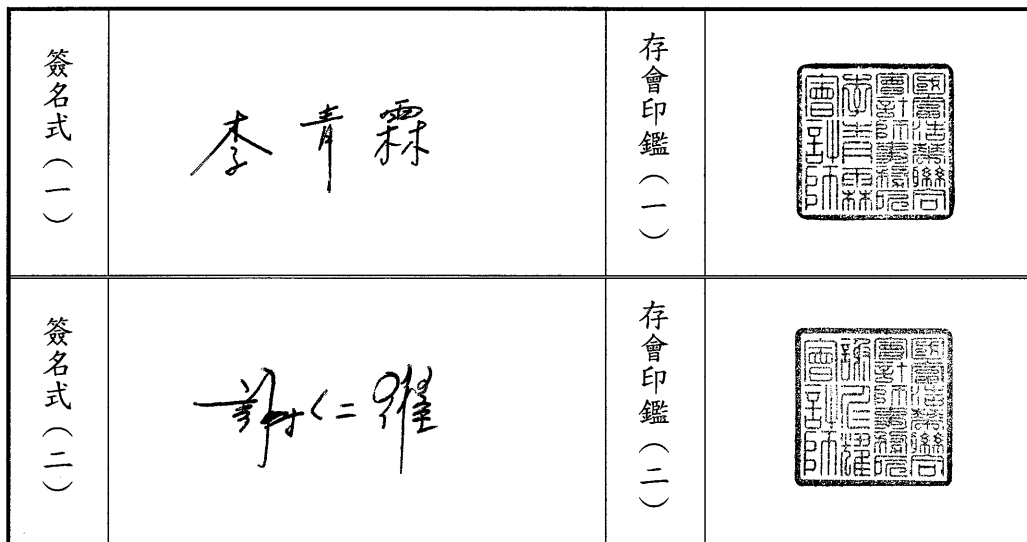 簽名式（一）
李青霖
存會印鑑（一）
國富浩華聯合
會計師事務所
李青霖
會計師
簽名式（二）
謝仁耀
存會印鑑（二）
國富浩華聯合
會計師事務所
謝仁耀
會計師